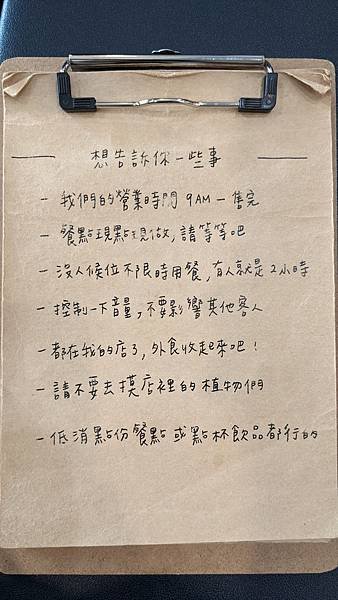 想告訴你一些事
- 我們的營業時間 9AM - 售完
- 餐點現點現做,請等等吧
- 沒人候位不限時用餐,有人就是2小時
- 控制一下音量,不要影響其他客人
- 都在我的店了,外食收起來吧!
- 請不要去摸店裡的植物們
- 低消點份餐點或點杯飲品都行的